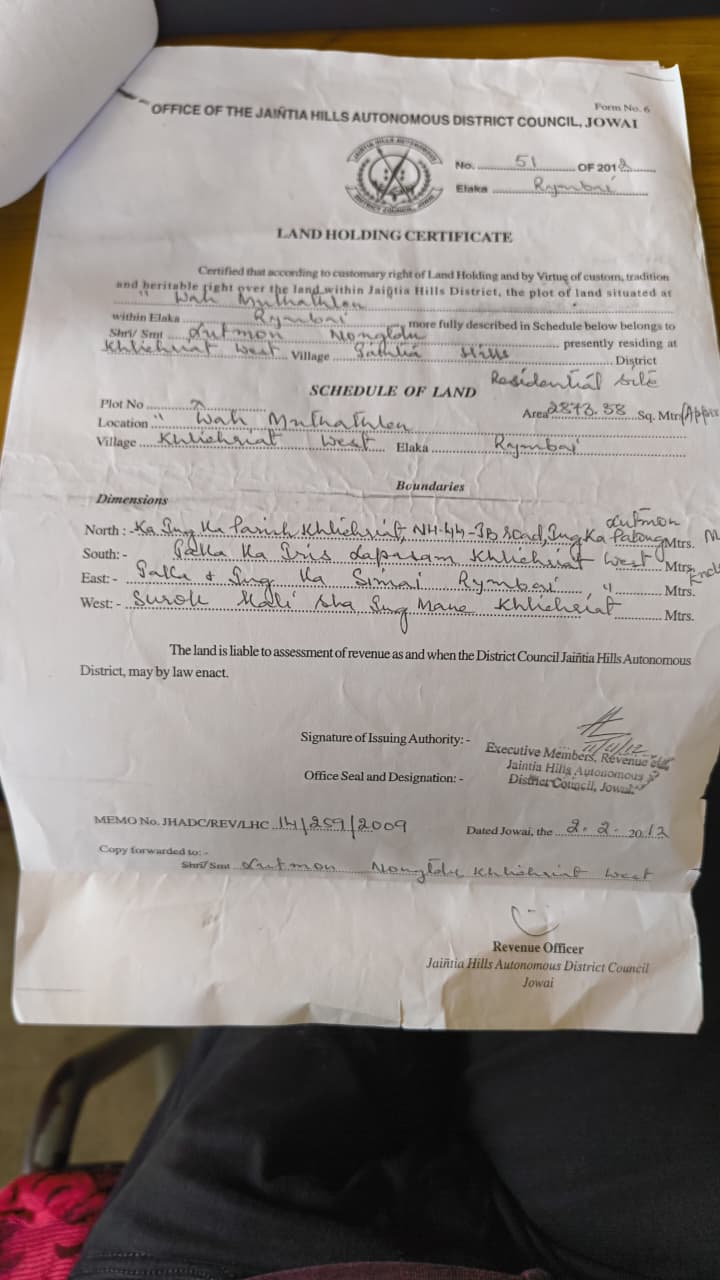 Form No. 6
OFFICE OF THE JAIÑTIA HILLS AUTONOMOUS DISTRICT COUNCIL, JOWAI
JAIÑTIA HILLS AUTONOMOUS
DISTRICT COUNCIL, JOWAI
No. 51 OF 201
Elaka Rymbai
LAND HOLDING CERTIFICATE
Certified that according to customary right of Land Holding and by Virtue of custom, tradition
and heritable right over the land within Jaiñtia Hills District, the plot of land situated at
" Wah Muthathlen
within Elaka Rymbai more fully described in Schedule below belongs to
Shri/ Smt Lutmon Nongtdu presently residing at
Khliehriat West Village Jaiñtia Hills District
Residential Site
SCHEDULE OF LAND
Plot No
Area 2873.38 Sq. Mtr (Appx
Location " Wah Muthathlen
Village Khliehriat West Elaka Rymbai
Boundaries
Dimensions
Lutmon
North : - Ka Ïung Ka Parish Khliehriat, NH-44-JB road, Ïung Ka Mtrs.
South: - Ka Iris Laparam Khliehriat West Mtrs.
East: - & Ïung Ka Simai Rymbai " Mtrs.
West: - Surok Heli sha Ïung Mane Khliehriat Mtrs.
The land is liable to assessment of revenue as and when the District Council Jaiñtia Hills Autonomous
District, may by law enact.
Signature of Issuing Authority: -
Executive Members, Revenue etc
Jaintia Hills Autonomous
District Council, Jowai.
Office Seal and Designation: -
MEMO No. JHADC/REV/LHC 14/259/2009
Dated Jowai, the 2. 2. 2012
Copy forwarded to: -
Shri/ Smt Lutmon Nongtdu Khliehriat West
Revenue Officer
Jaiñtia Hills Autonomous District Council
Jowai